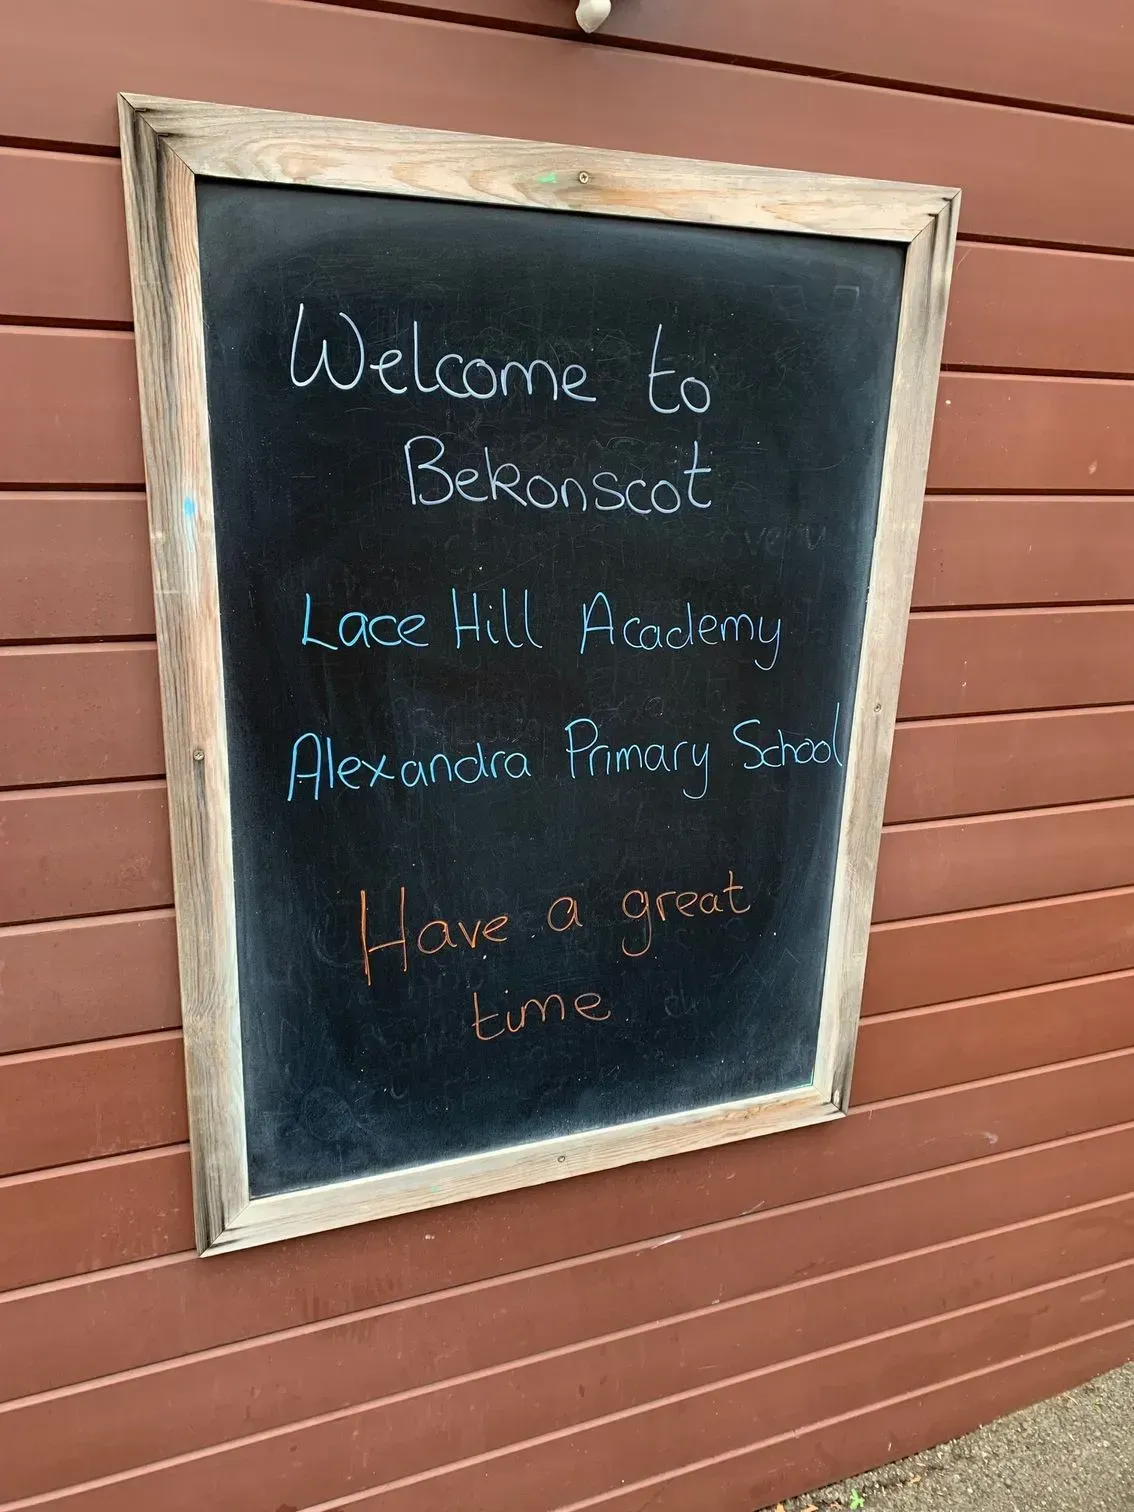 Welcome to
Bekonscot
Lace Hill Academy
Alexandra Primary School
Have a great
time